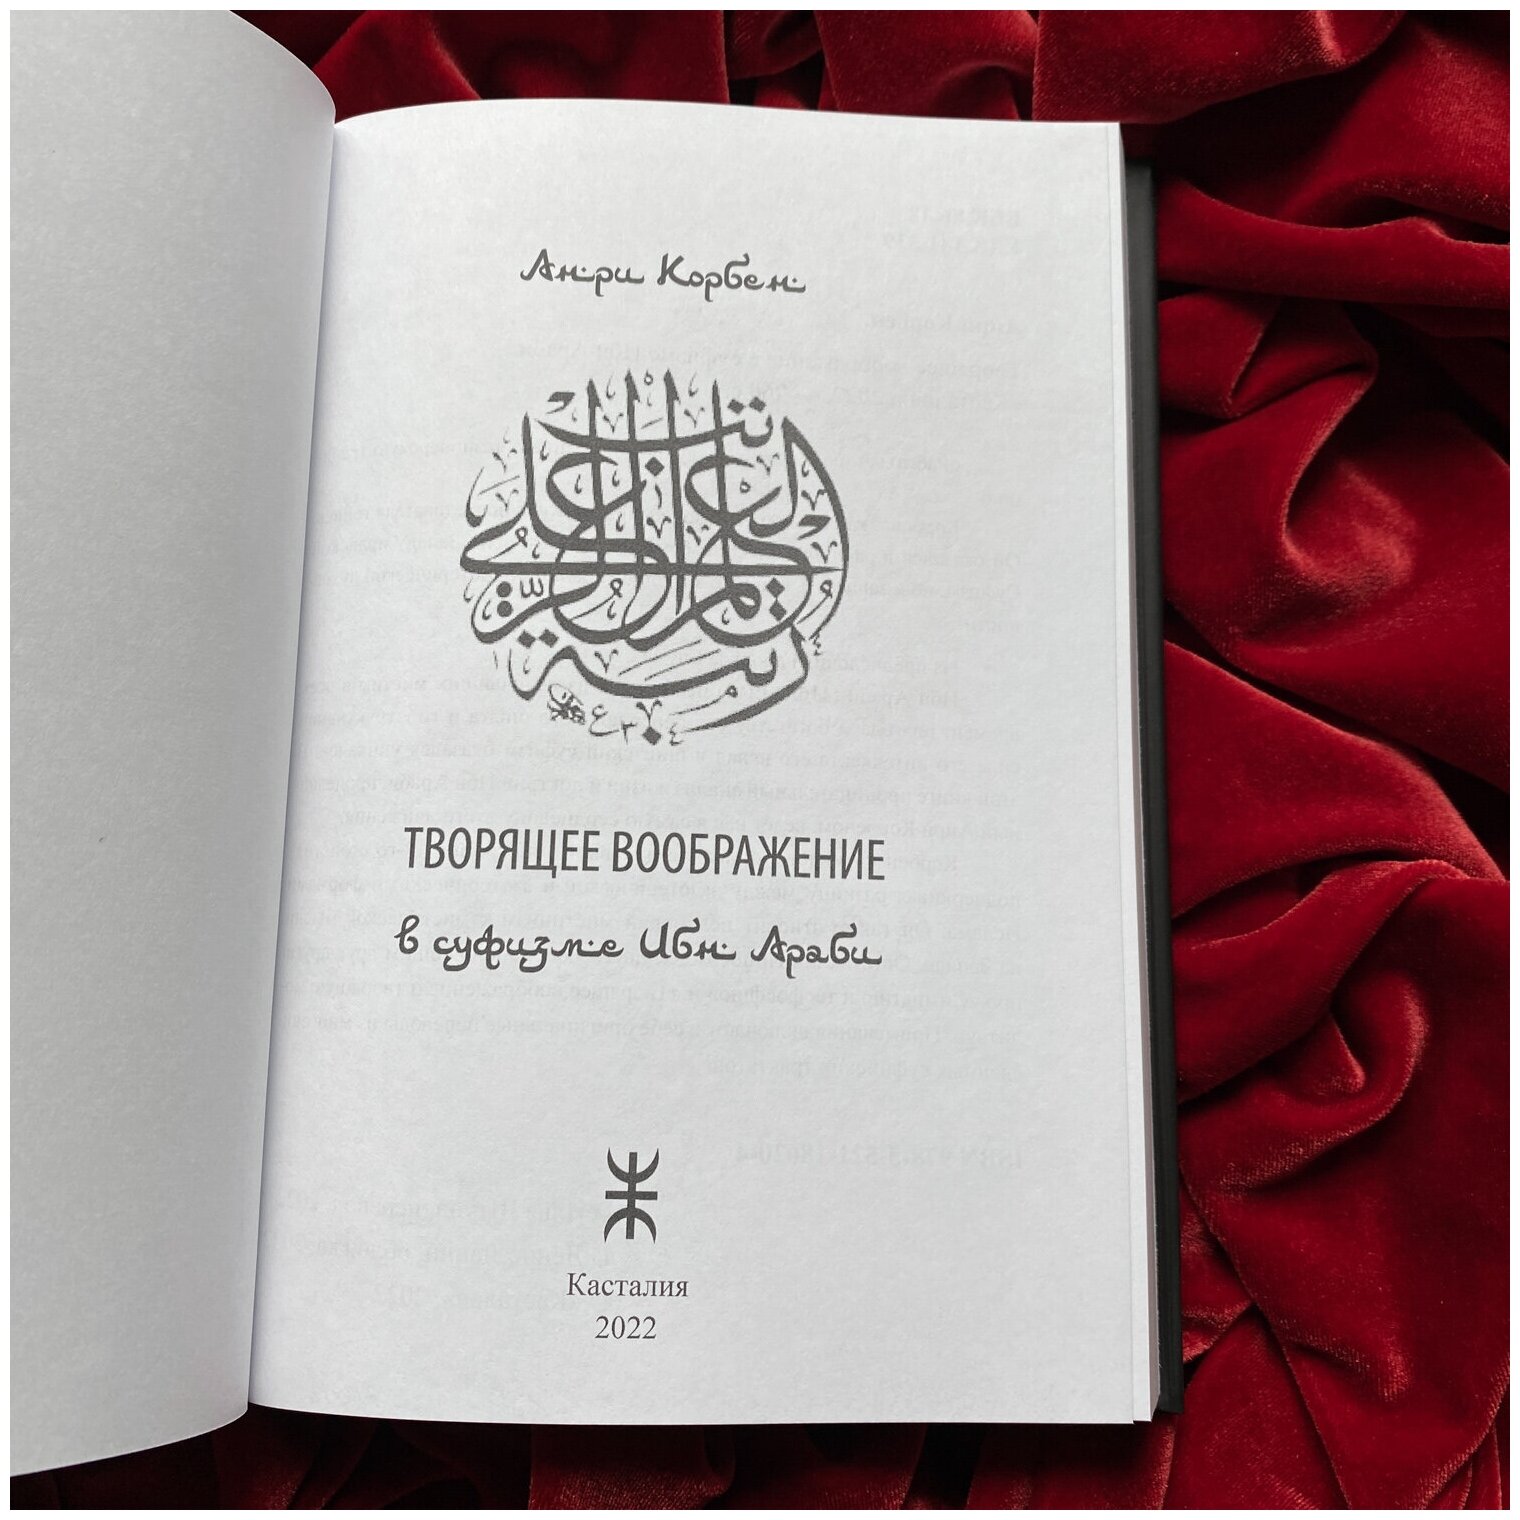 Анри Корбен
ТВОРЯЩЕЕ ВООБРАЖЕНИЕ
в суфизме Ибн Араби
Касталия
2022